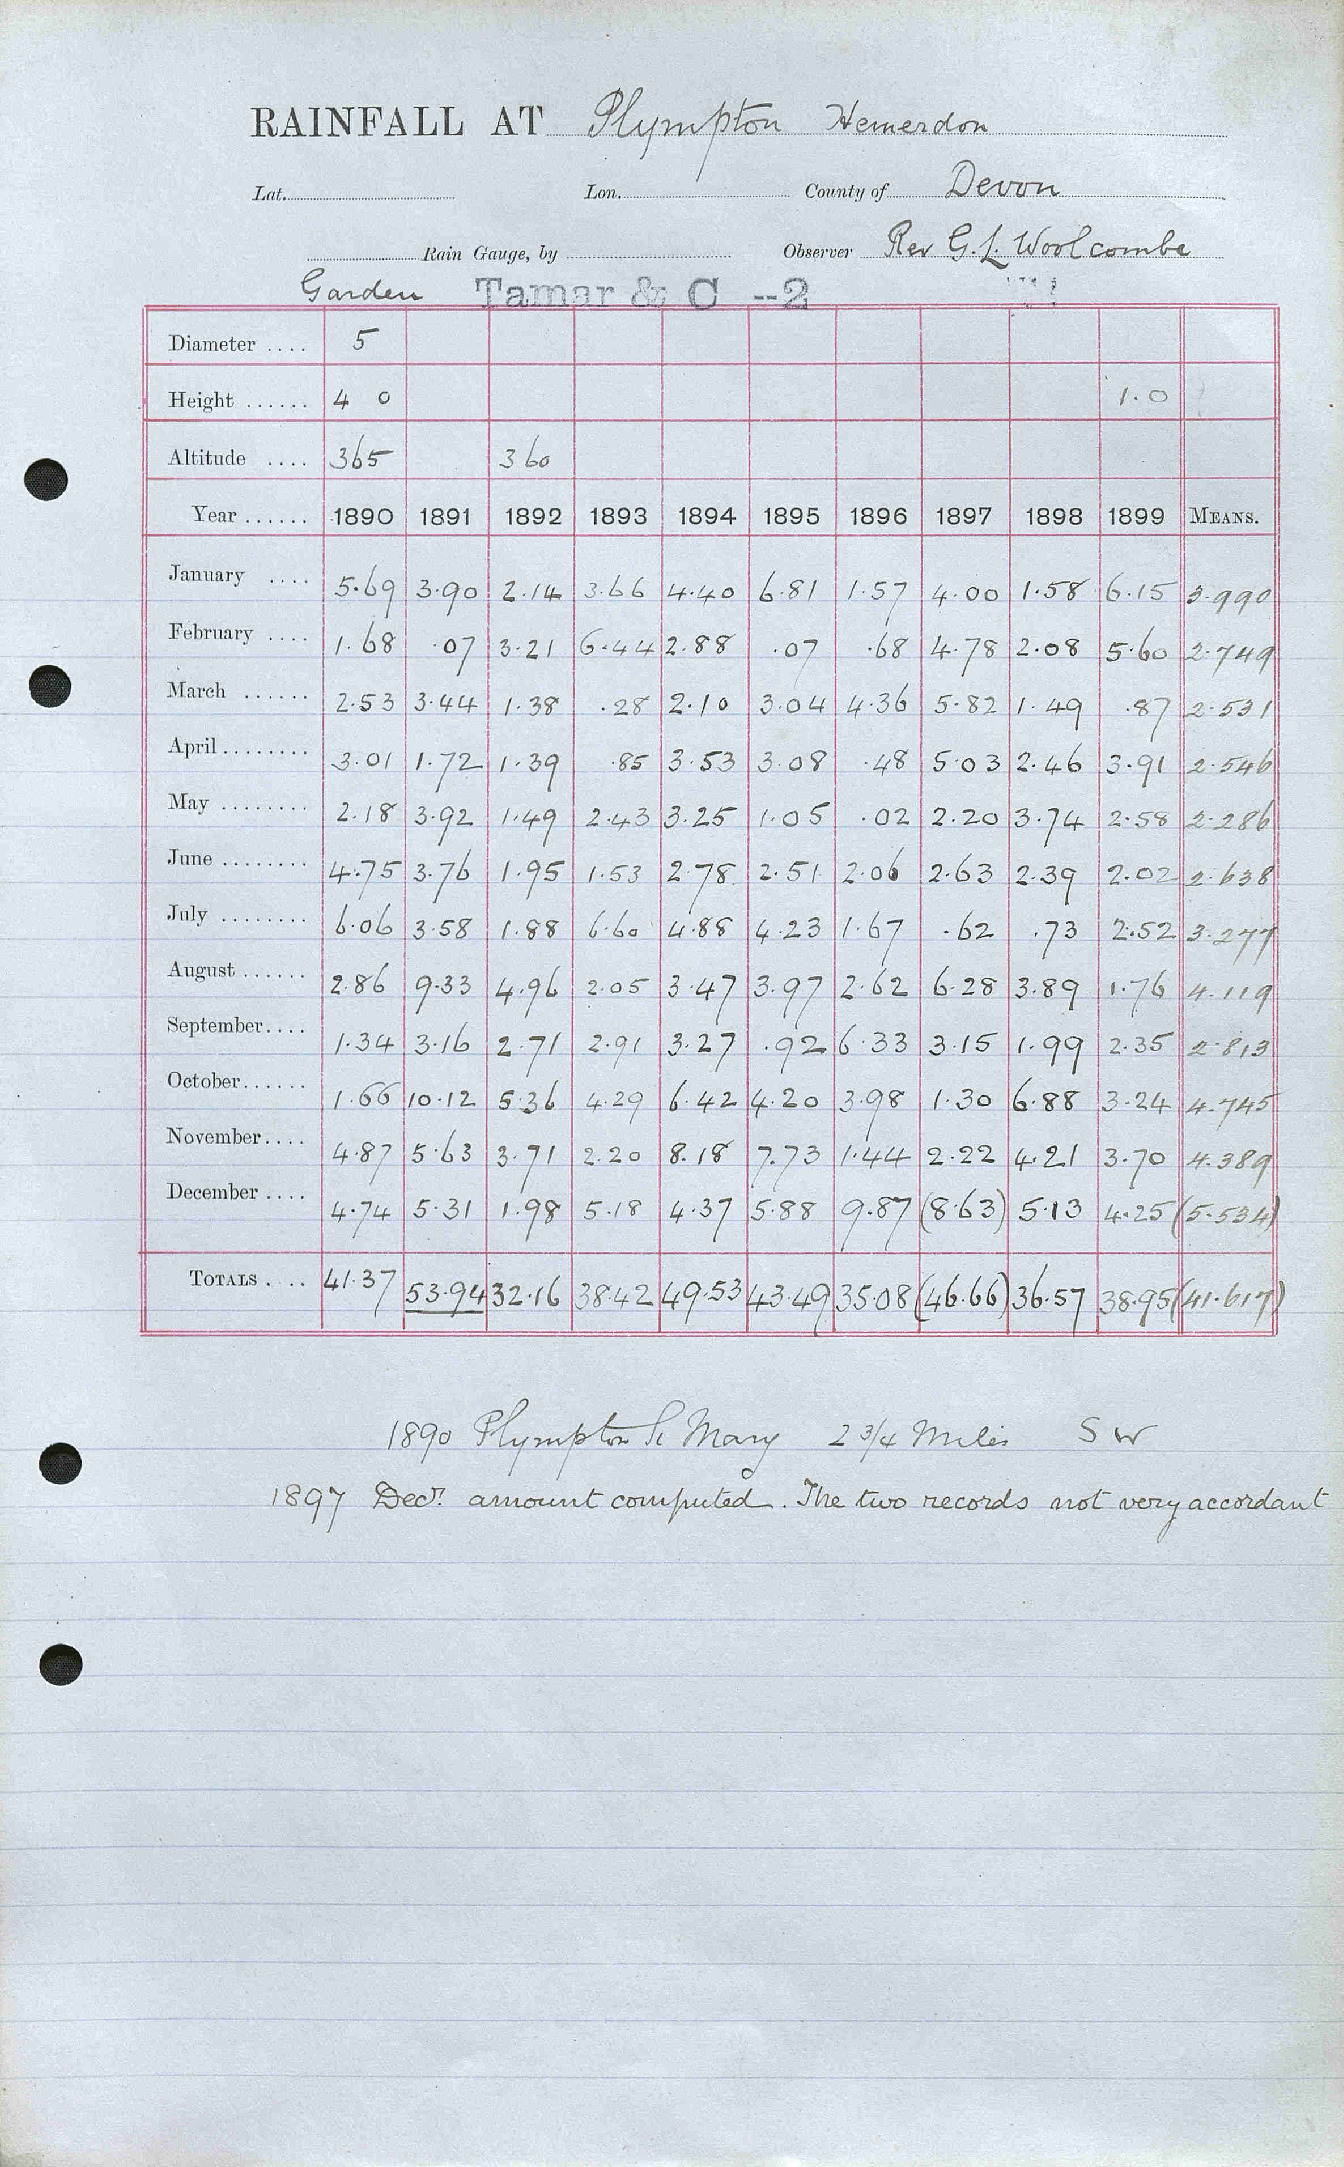 RAINFALL AT Plympton Hemerdon
Lat. Lon. County of Devon
Rain Gauge, by Observer Rev G. L. Woolcombe
Garden Tamar & C --2
Diameter .... 5
Height ...... 4 0 1.0
Altitude .... 365 360
Year ...... 1890 1891 1892 1893 1894 1895 1896 1897 1898 1899 MEANS.
January .... 5.69 3.90 2.14 3.66 4.40 6.81 1.57 4.00 1.58 6.15 3.990
February .... 1.68 .07 3.21 6.44 2.88 .07 .68 4.78 2.08 5.60 2.749
March ...... 2.53 3.44 1.38 .28 2.10 3.04 4.36 5.82 1.49 .87 2.531
April ........ 3.01 1.72 1.39 .85 3.53 3.08 .48 5.03 2.46 3.91 2.546
May ........ 2.18 3.92 1.49 2.43 3.25 1.05 .02 2.20 3.74 2.58 2.286
June ........ 4.75 3.76 1.95 1.53 2.78 2.51 2.06 2.63 2.39 2.02 2.638
July ........ 6.06 3.58 1.88 6.60 4.88 4.23 1.67 .62 .73 2.52 3.277
August ...... 2.86 9.33 4.96 2.05 3.47 3.97 2.62 6.28 3.89 1.76 4.119
September .... 1.34 3.16 2.71 2.91 3.27 .92 6.33 3.15 1.99 2.35 2.813
October ...... 1.66 10.12 5.36 4.29 6.42 4.20 3.98 1.30 6.88 3.24 4.745
November .... 4.87 5.63 3.71 2.20 8.18 7.73 1.44 2.22 4.21 3.70 4.389
December .... 4.74 5.31 1.98 5.18 4.37 5.88 9.87 (8.63) 5.13 4.25 (5.534)
TOTALS .... 41.37 53.94 32.16 38.42 49.53 43.49 35.08 (46.66) 36.57 38.95 (41.617)
1890 Plympton St Mary 2 3/4 Miles S W
1897 Decr. amount computed. The two records not very accordant